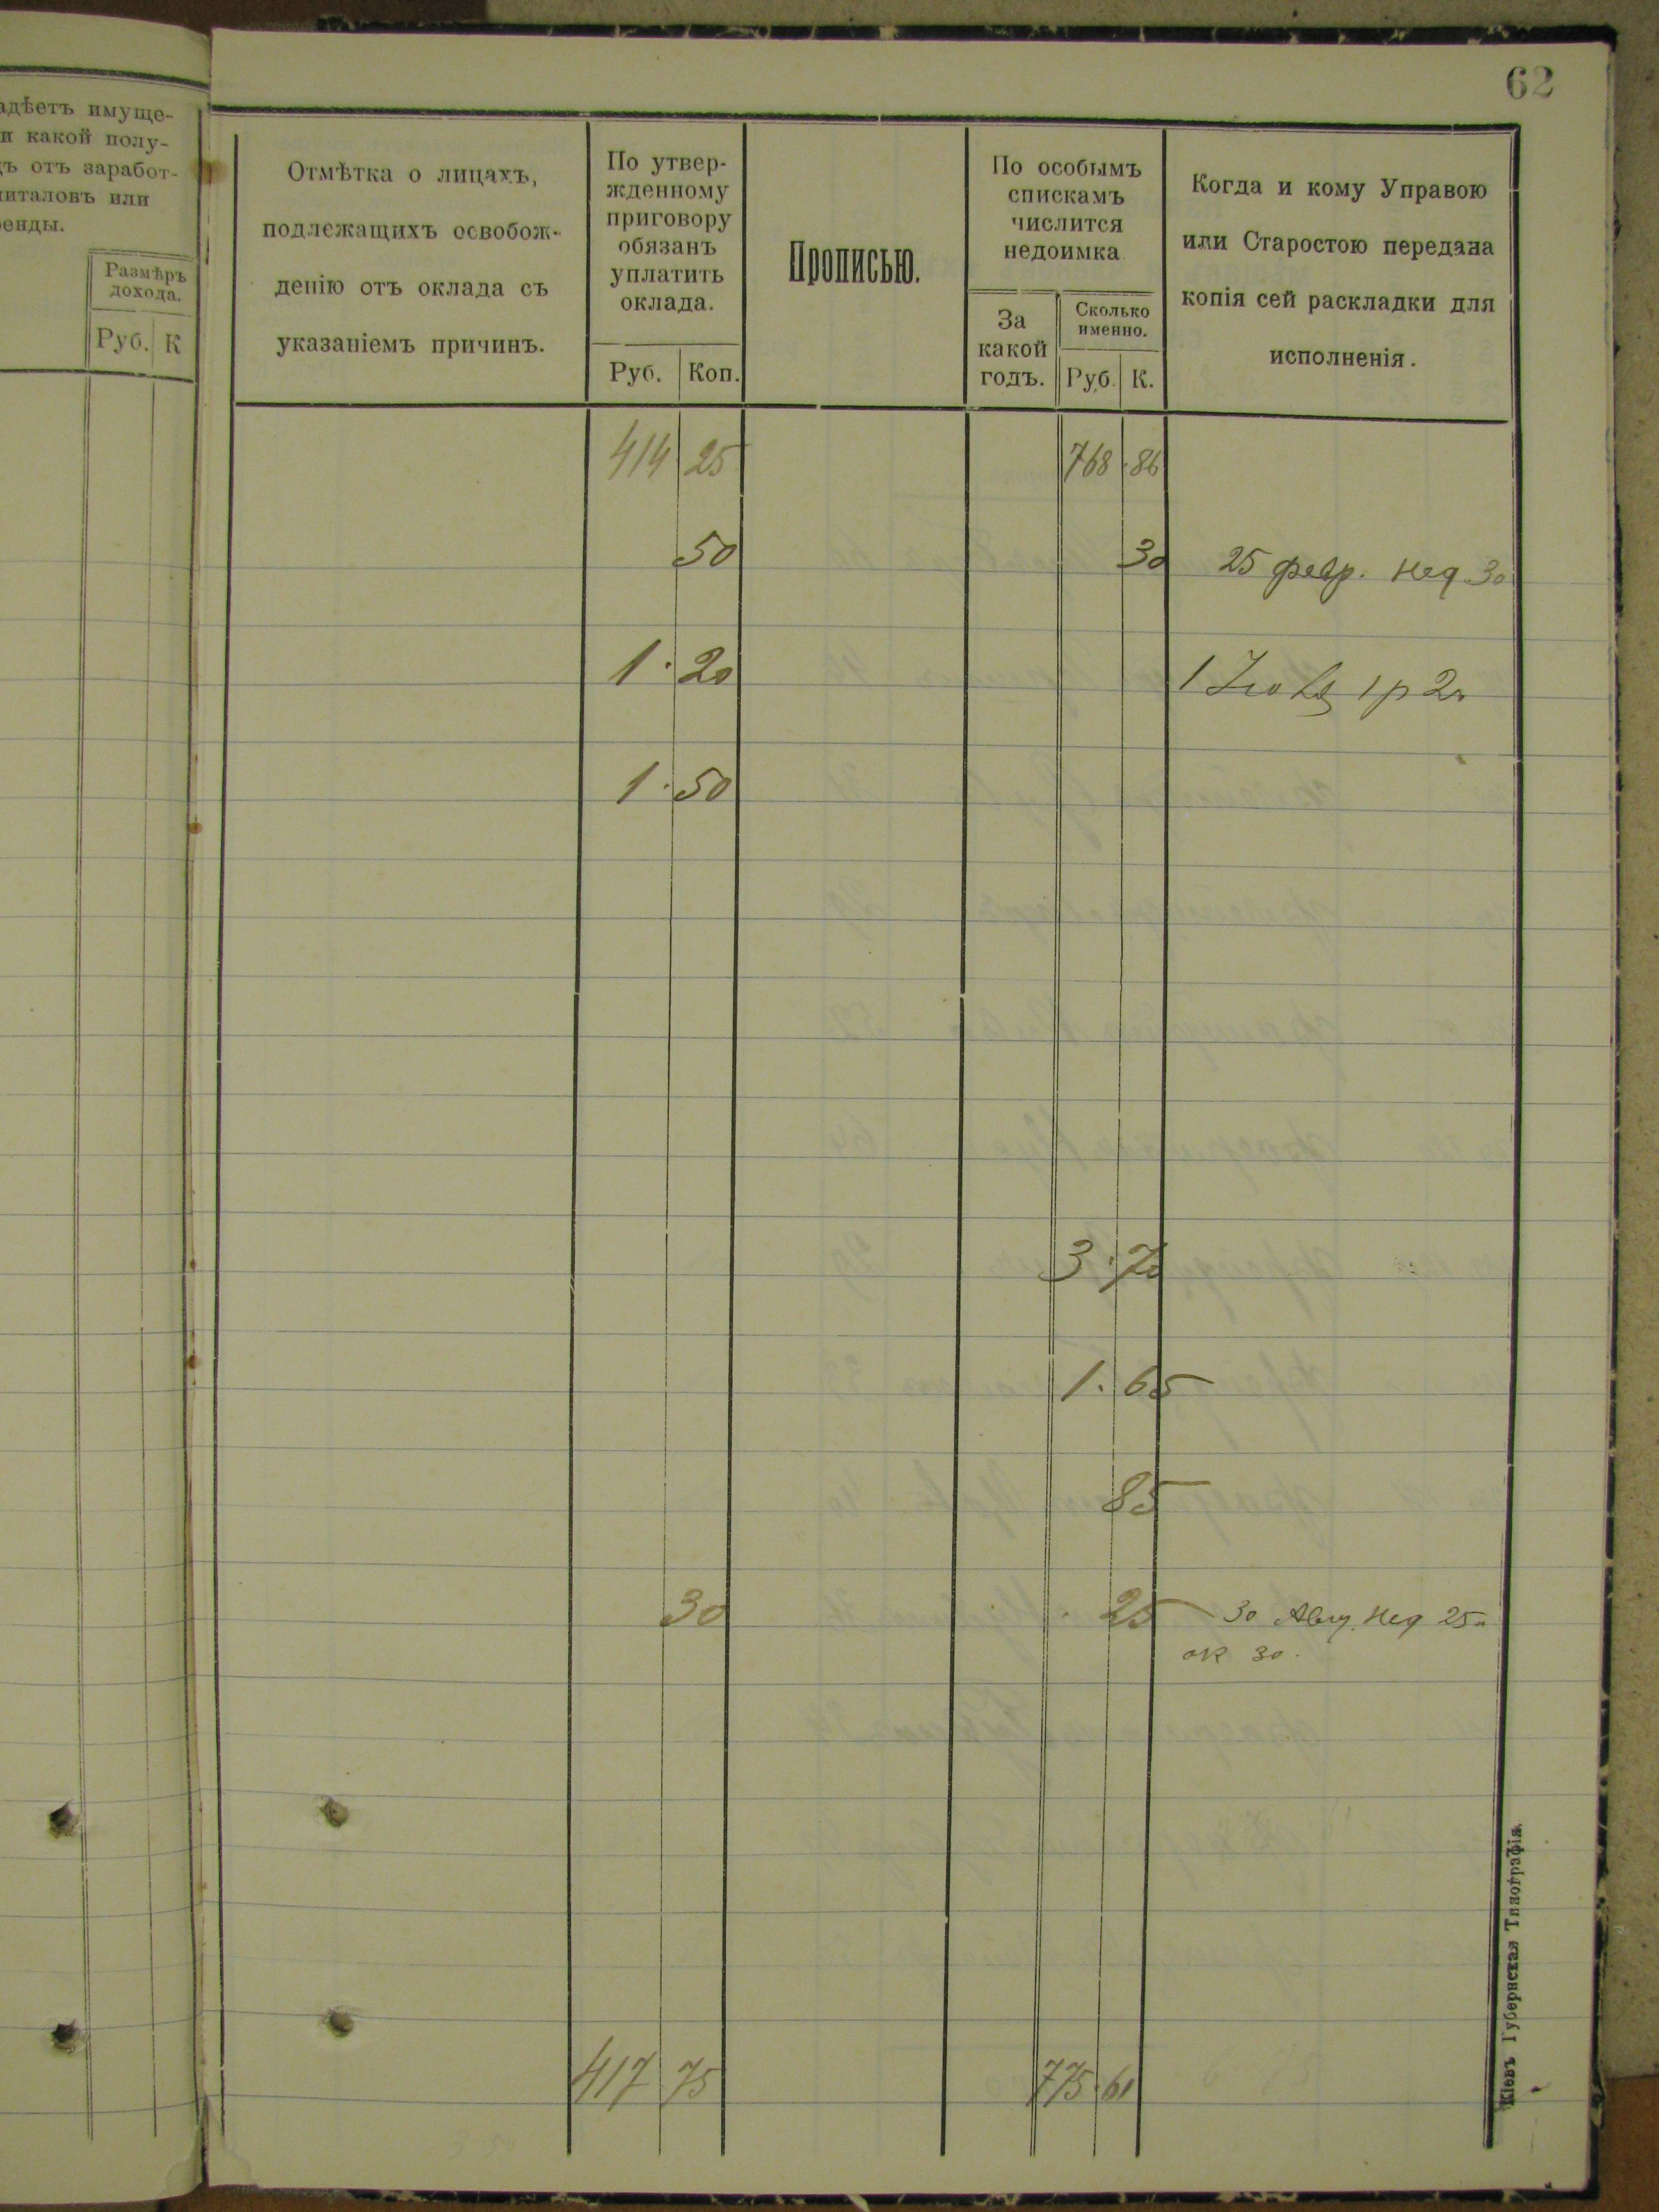 62
адѣетъ имуще-
и какой полу-
ъ отъ заработ-
италовъ или
енды.
Размѣръ
дохода.
Руб. К
Отмѣтка о лицахъ,
подлежащихъ освобож-
денію отъ оклада съ
указаніемъ причинъ.
По утвер-
жденному
приговору
обязанъ
уплатить
оклада.
Руб. Коп.
Прописью.
По особымъ
спискамъ
числится
недоимка
За
какой
годъ.
Сколько
именно.
Руб. К.
Когда и кому Управою
или Старостою передана
копія сей раскладки для
исполненія.
414 25 768 · 86
50 30 25 февр. нед. 30
1 · 20 1 1 р 20
1 · 50
3 · 70
1 · 65
85
30 25 30 Авг. нед 25 к
ок 30.
417 75 775 · 61
Кіевъ Губернская Типографія.